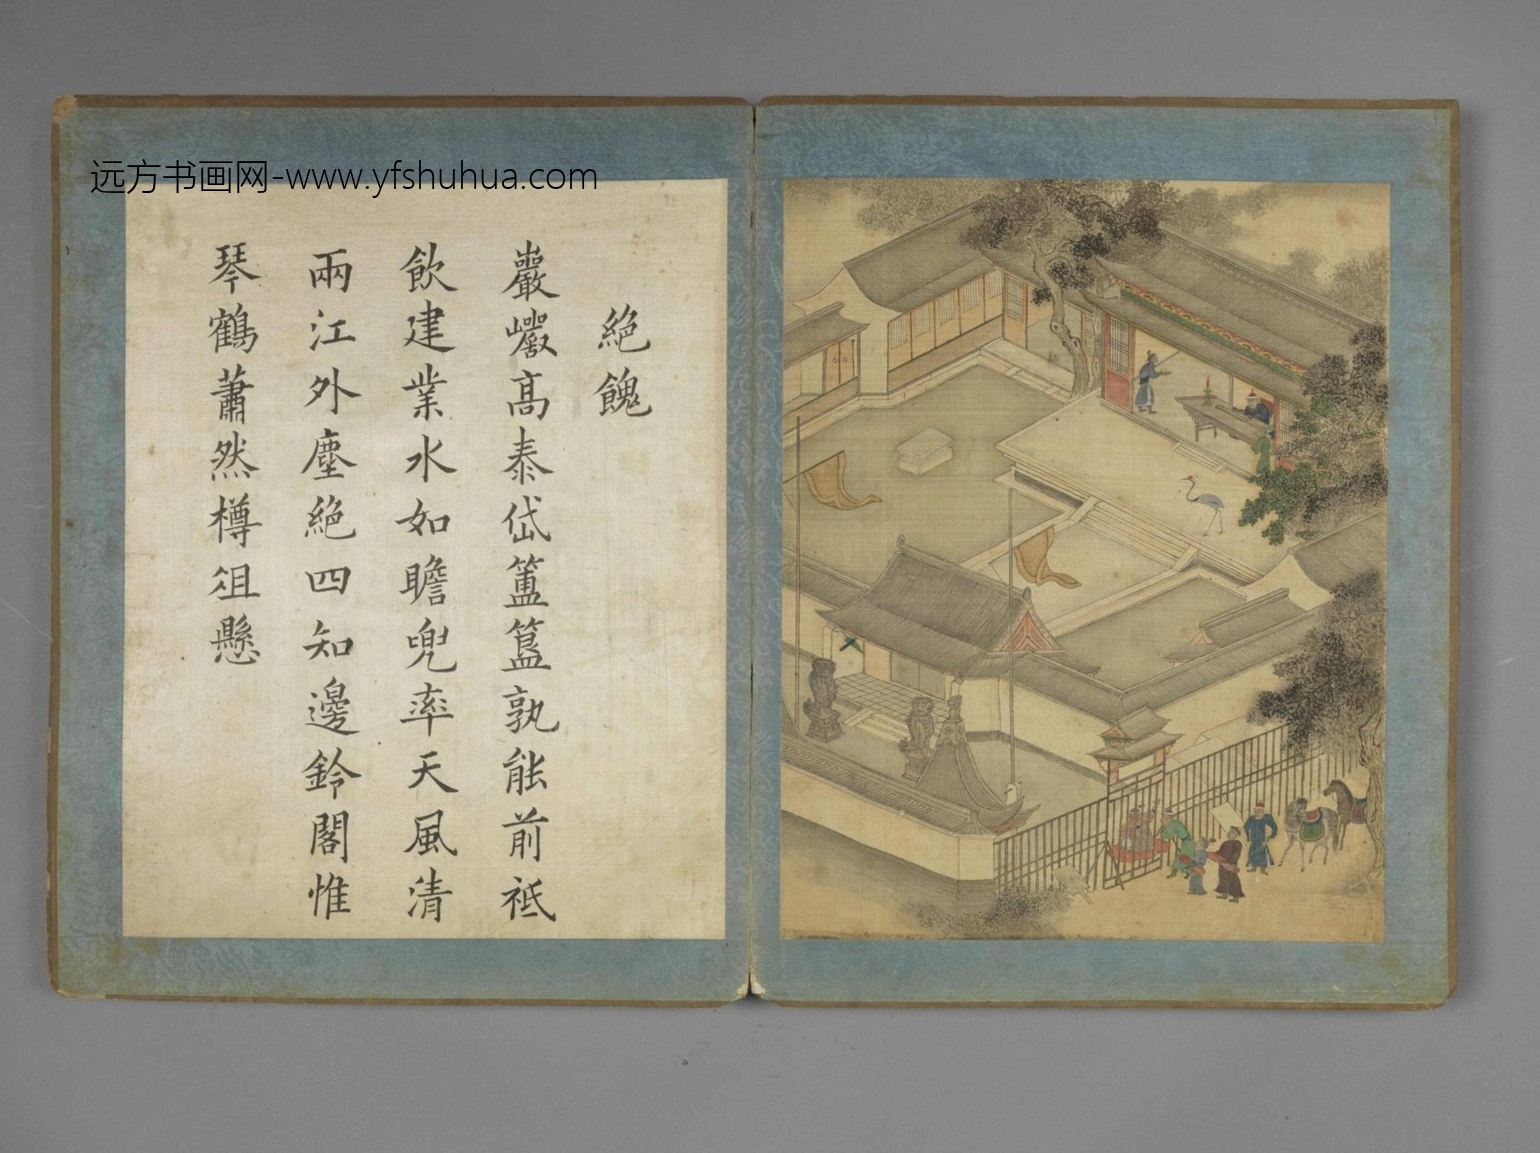 远方书画网-www.yfshuhua.com
絕餽
巖巖高泰岱簠簋孰能前祗
飲建業水如瞻兜率天風清
兩江外塵絕四知邊鈴閣惟
琴鶴蕭然樽俎懸